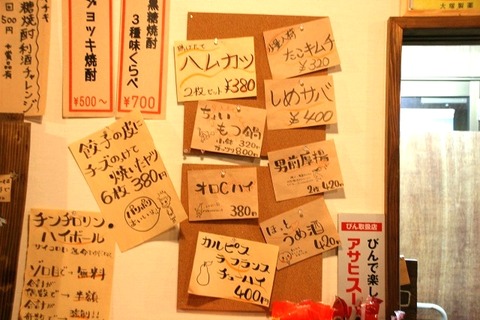 黒糖焼酎
利酒チャレンジ
メヨツキ焼酎
¥500〜
黒糖焼酎
3種味くらべ
¥700
揚げたて
ハムカツ
2枚セット ¥380
たこキムチ
¥320
しめサバ
¥400
ちょい
もつ鍋
320円
800円
餃子の皮に
チーズのっけて
焼いたヤツ
6枚 380円
男前厚揚
2枚 420円
オロCハイ
380円
ほっと
うめ酒
420円
カルピス
ラ・フランス
チューハイ
400円
チンチロリン
ハイボール
ゾロ目で→無料
合計が
偶数で→半額
合計が
びん取扱店
びんで楽し
アサヒスーパ
大塚製薬